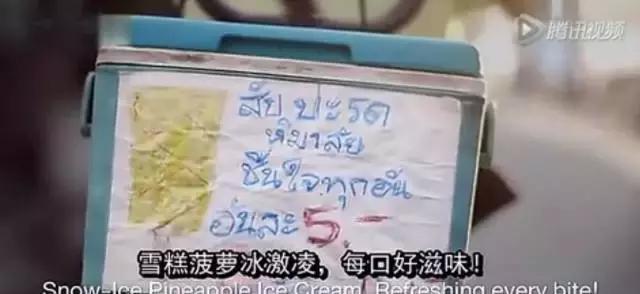 腾讯视频
สับ ปะรด
หิมาลัย
ชื่นใจ ทุกอัน
อันละ 5.-
雪糕菠萝冰激凌，每口好滋味！
Snow-Ice Pineapple Ice Cream. Refreshing every bite!